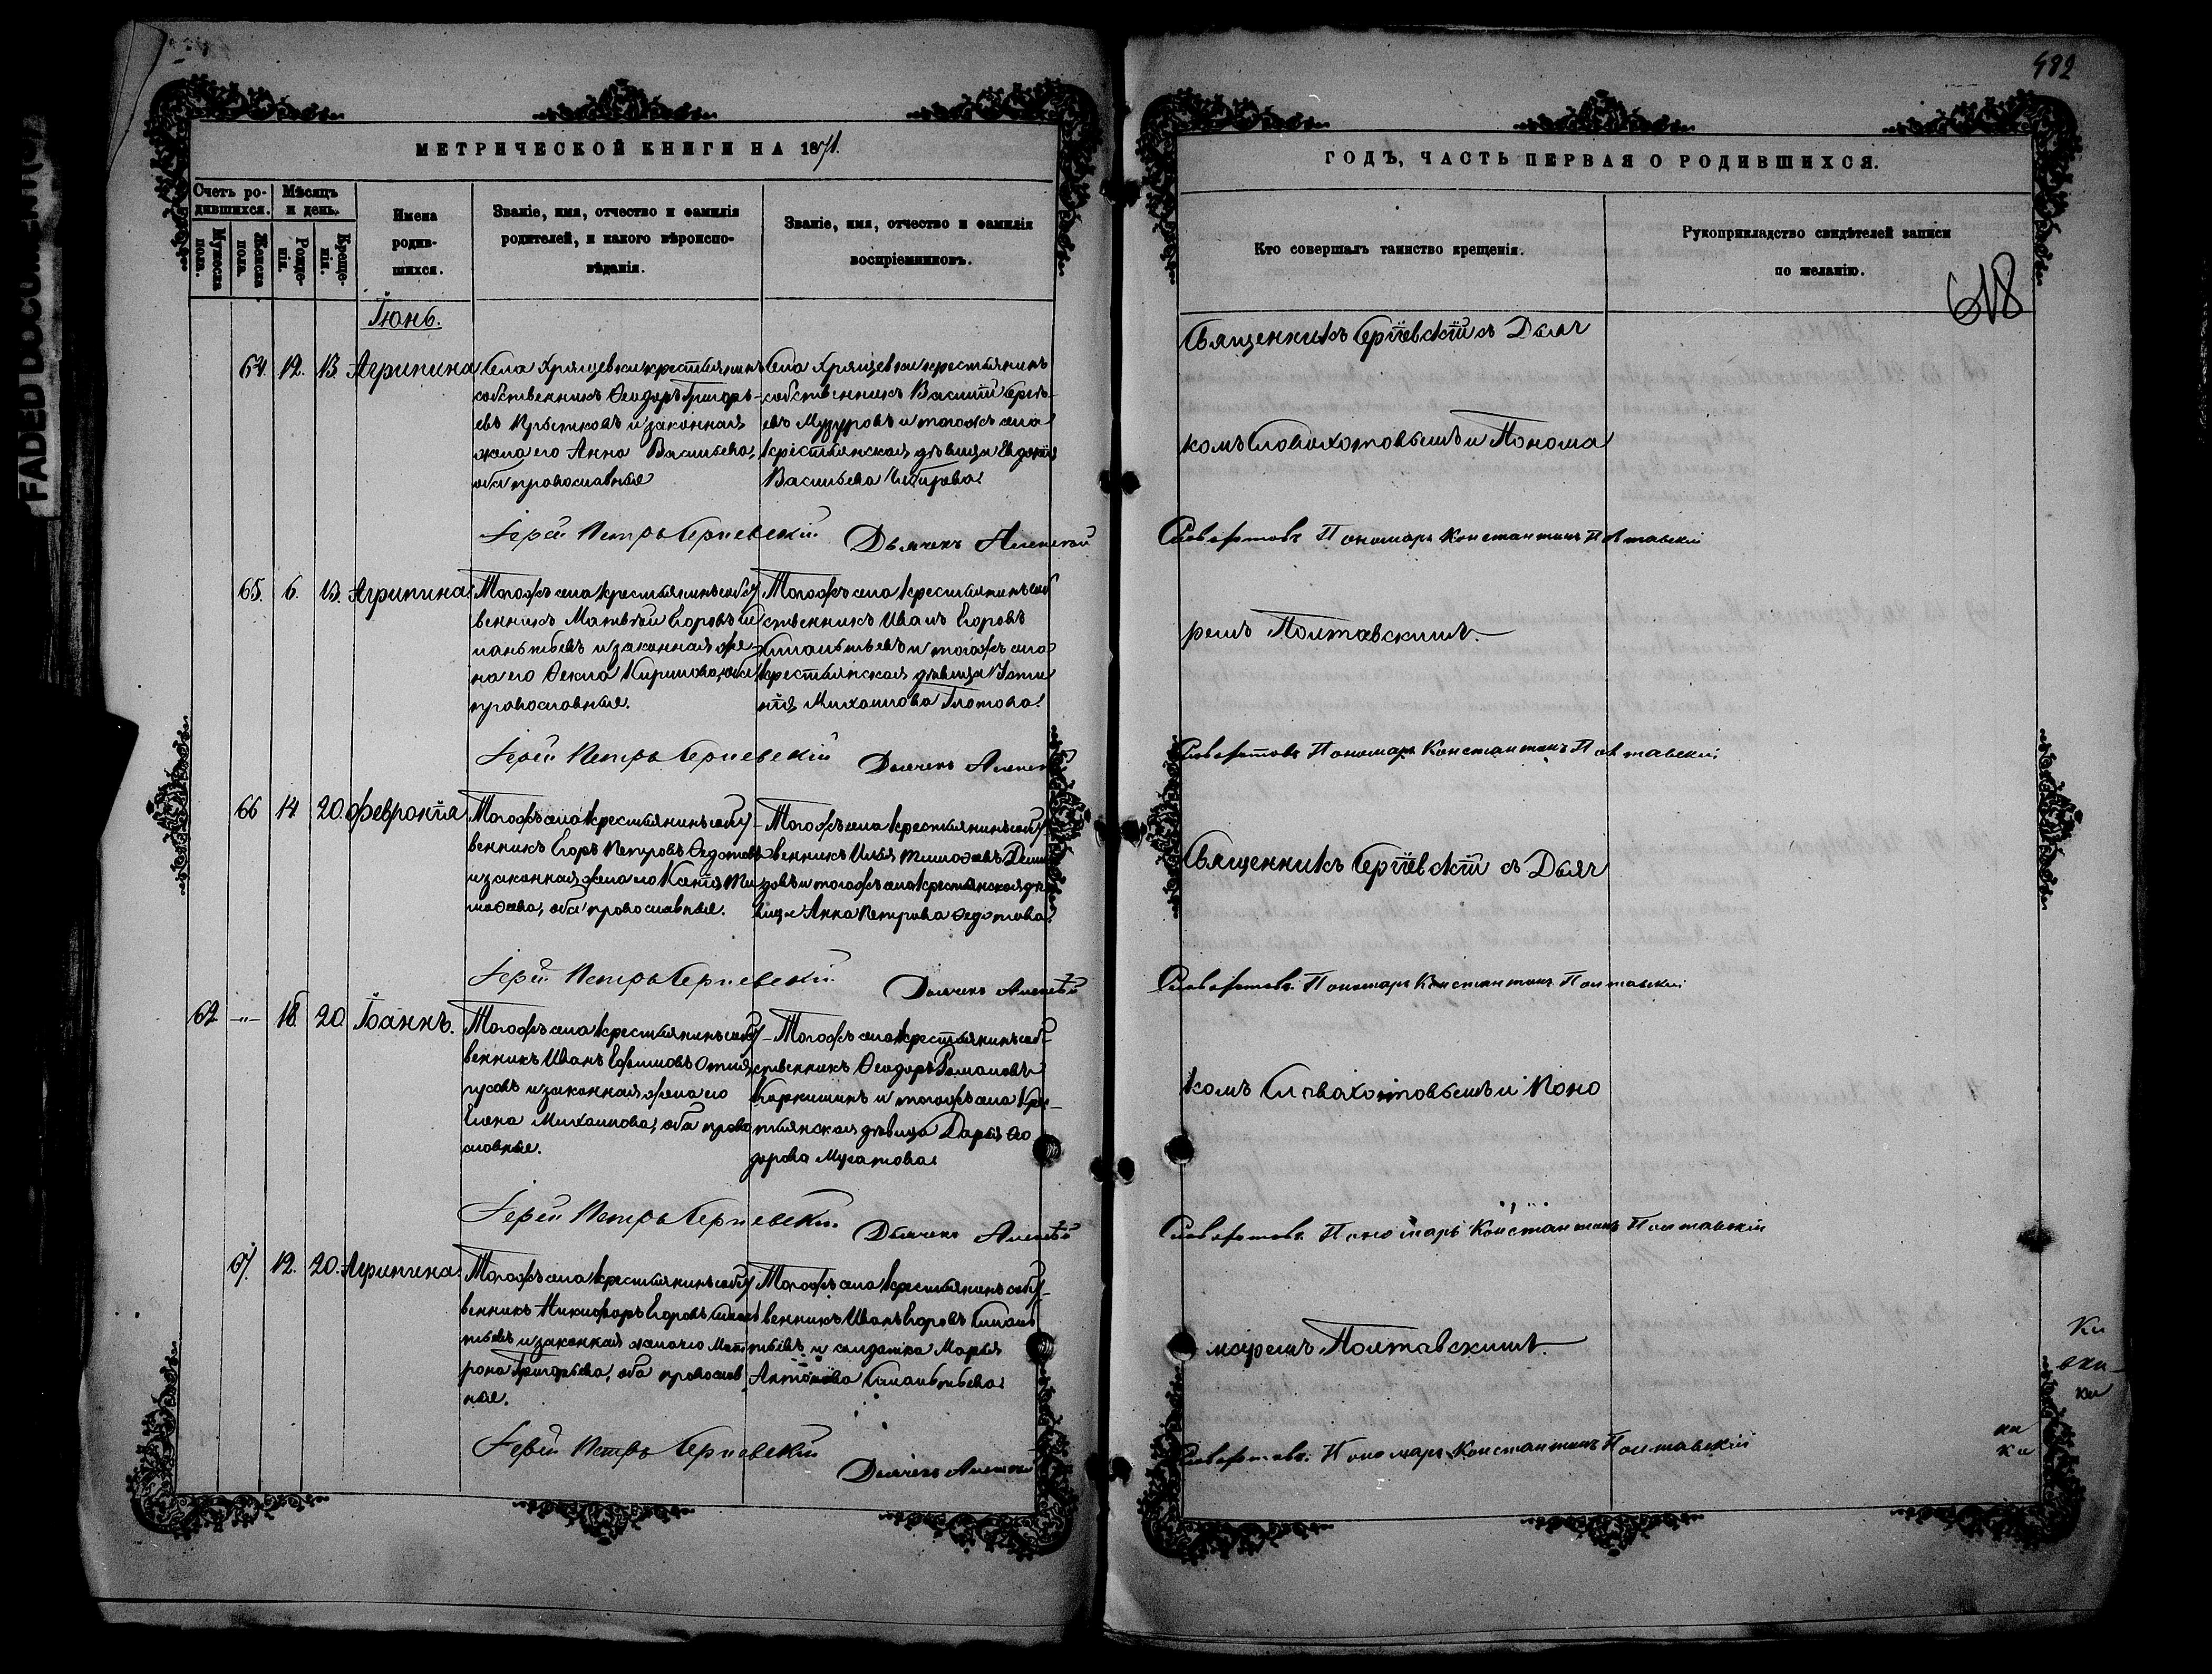 FADED DOCUMENT(S)
482
МЕТРИЧЕСКОЙ КНИГИ НА 1871.
Счетъ ро-
дившихся.
Мужеска
пола.
Женска
пола.
Мѣсяцъ
и день.
Рожде-
нія.
Креще-
нія.
Имена
родив-
шихся.
Званіе, имя, отчество и фамилія
родителей, и какого вѣроиспо-
вѣданія.
Званіе, имя, отчество и фамилія
воспріемниковъ.
Іюнь.
64. 12. 13. Агрипина
Села Хрящевки крестьянинъ
собственникъ Ѳеодоръ Григорь-
евъ и законная
жена его Анна Васильева,
оба православные
Села Хрящевки крестьянинъ
собственникъ Василій Сергѣ-
евъ Музуровъ и тогожъ села
крестьянская дѣвица Евдокія
Васильева
Іерей Петръ Сергіевскій Дьячекъ Алексѣй
65. 6. 13. Агрипина
Тогожъ села крестьянинъ собст
венникъ Матвѣй Егоровъ Си
лантьевъ и законная же-
на его Ѳекла Кирилова, оба
православные.
Тогожъ села крестьянинъ соб
ственникъ Иванъ Егоровъ
Силантьевъ и тогожъ села
крестьянская дѣвица
Михаилова Глотова.
Іерей Петръ Сергіевскій Дьячекъ Алексѣй
66 14 20. Февронія
Тогожъ села крестьянинъ собст-
венникъ Егоръ Петровъ Ѳедотовъ
и законная жена его Ксенія Ти
моѳеева, оба православные.
Тогожъ села крестьянинъ собст-
венникъ Илья Тимоѳеевъ
и тогожъ села крестьянская дѣ
вица Анна Петрова Ѳедотова.
Іерей Петръ Сергіевскій Дьячекъ Алексѣй
62 -"- 18. 20 Іоаннъ.
Тогожъ села крестьянинъ собст
венникъ Иванъ Ефимовъ
и законная жена его
Елена Михаилова, оба право
славные.
Тогожъ села крестьянинъ соб-
ственникъ Ѳеодоръ Романовъ
и тогожъ села Кре-
стьянская дѣвица Дарья Ѳео
дорова Мусатова.
Іерей Петръ Сергіевскій Дьячекъ Алексѣй
67. 12. 20. Агрипина
Тогожъ села крестьянинъ собст
венникъ Никифоръ Егоровъ Силан
тьевъ и законная жена его Мат
рона Григорьева, оба православ
ные.
Тогожъ села крестьянинъ собст-
венникъ Иванъ Егоровъ Силан
тьевъ и солдатка Марья
Антонова Силантьева.
Іерей Петръ Сергіевскій Дьячекъ Алексѣй
ГОДЪ, ЧАСТЬ ПЕРВАЯ О РОДИВШИХСЯ.
Кто совершалъ таинство крещенія.
Рукоприкладство свидѣтелей записи
по желанію.
618
Священникъ Сергіевскій съ Дьяч
комъ Словохотовымъ и Понома
Словохотовъ Пономарь Константинъ Полтавскій
ремъ Полтавскимъ.
Словохотовъ Пономарь Константинъ Полтавскій
Священникъ Сергіевскій съ Дьяч
Словохотовъ. Пономарь Константинъ Полтавскій
комъ Словохотовымъ и Поно
Словохотовъ. Пономарь Константинъ Полтавскій
маремъ Полтавскимъ.
Словохотовъ. Пономарь Константинъ Полтавскій